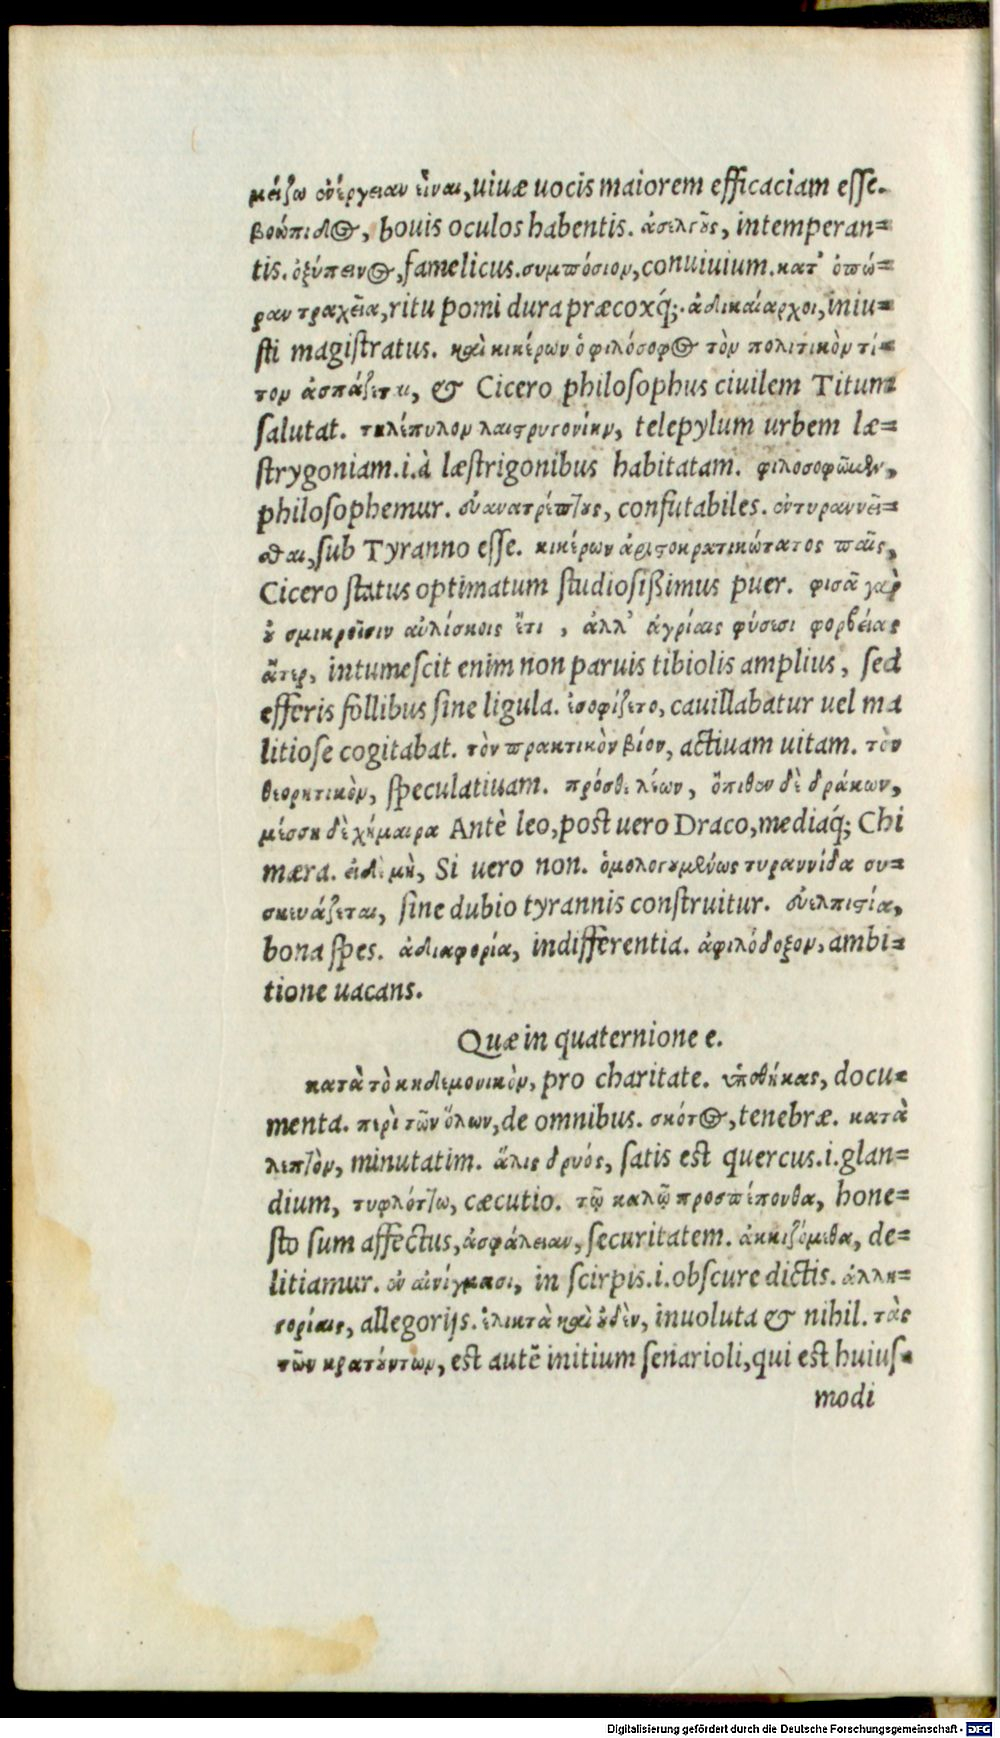 μείζω ἐνέργειαν εἶναι, uiuæ uocis maiorem efficaciam esse.
βοώπιδος, bouis oculos habentis. ἀσελγοῦς, intemperan=
tis. ὀξύπεινος, famelicus. συμπόσιον, conuiuium. κατ' ὀπώ=
ραν τραχεῖα, ritu pomi dura præcoxq́;. ἀδικαίαρχοι, iniu=
sti magistratus. καὶ κικέρων ὁ φιλόσοφος τὸν πολιτικὸν τί=
τον ἀσπάζεται, & Cicero philosophus ciuilem Titum
salutat. τηλέπυλον λαιστρυγονίην, telepylum urbem læ=
strygoniam.i.à læstrigonibus habitatam. φιλοσοφῶμεν,
philosophemur. εὐανατρέπτους, confutabiles. ἐντυραννεῖ=
σθαι, sub Tyranno esse. κικέρων ἀριστοκρατικώτατος παῖς,
Cicero status optimatum studiosißimus puer. φισᾶ γὰρ
οὐ σμικροῖσιν αὐλίσκοις ἔτι, ἀλλ' ἀγρίαις φύσεσι φορβείας
ἄτερ, intumescit enim non paruis tibiolis amplius, sed
efferis follibus sine ligula. ἐσοφίζετο, cauillabatur uel ma
litiose cogitabat. τὸν πρακτικὸν βίον, actiuam uitam. τὸν
θεορητικὸν, speculatiuam. πρόσθε λέων, ὄπιθεν δὲ δράκων,
μέσση δὲ χίμαιρα Antè leo, post uero Draco, mediaq́; Chi
mæra. εἰ δὲ μὴ, Si uero non. ὁμολογουμένως τυραννίδα συ=
σκευάζεται, sine dubio tyrannis construitur. εὐελπιστία,
bona spes. ἀδιαφορία, indifferentia. ἀφιλόδοξον, ambi=
tione uacans.
Quæ in quaternione e.
κατὰ τὸ κηδεμονικὸν, pro charitate. ὑποθήκας, docu=
menta. περὶ τῶν ὅλων, de omnibus. σκότος, tenebræ. κατὰ
λεπτὸν, minutatim. ἅλις δρυός, satis est quercus.i.glan=
dium, τυφλότλω, cæcutio. τῷ καλῷ προσπέπονθα, hone=
sto sum affectus, ἀσφάλειαν, securitatem. ἀκκιζόμεθα, de=
litiamur. ἐν αἰνίγμασι, in scirpis.i.obscure dictis. ἀλλη=
γορίαις, allegorijs. ἑλικτὰ καὶ οὐδὲν, inuoluta & nihil. τὰς
τῶν κρατούντων, est autē initium senarioli, qui est huius=
modi
Digitalisierung gefördert durch die Deutsche Forschungsgemeinschaft - DFG